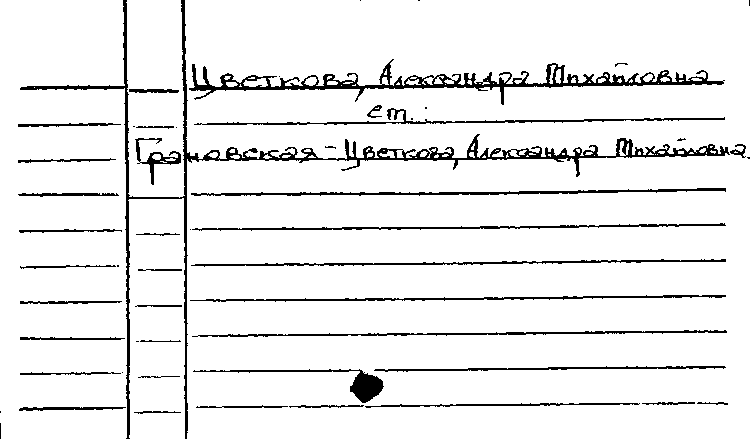 Цветкова, Александра Михайловна
см.:
Грановская-Цветкова, Александра Михайловна.